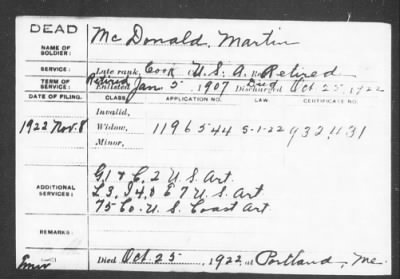 DEAD
NAME OF SOLDIER: McDonald, Martin
SERVICE: Late rank, Cook U.S.A. Retired
TERM OF SERVICE: Retired Enlisted Jan 5, 1907 Died Discharged Oct 25, 1922
DATE OF FILING. CLASS. APPLICATION NO. LAW. CERTIFICATE NO.
Invalid,
1922 Nov. 8 Widow, 1196544 S-1-22 932431
Minor,
ADDITIONAL SERVICES: G, 1 & C, 2 U.S. Art.
L 3, I 4, & E 7 U.S. Art
75 Co. U.S. Coast Art
REMARKS:
Died Oct. 25, 1922, at Portland, Me.